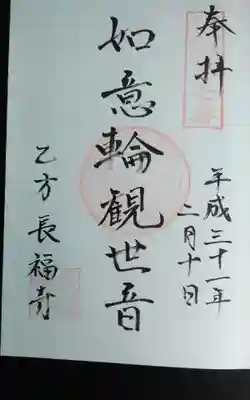 奉拝
平成三十一年
二月十日
如意輪観世音
乙方長福寺